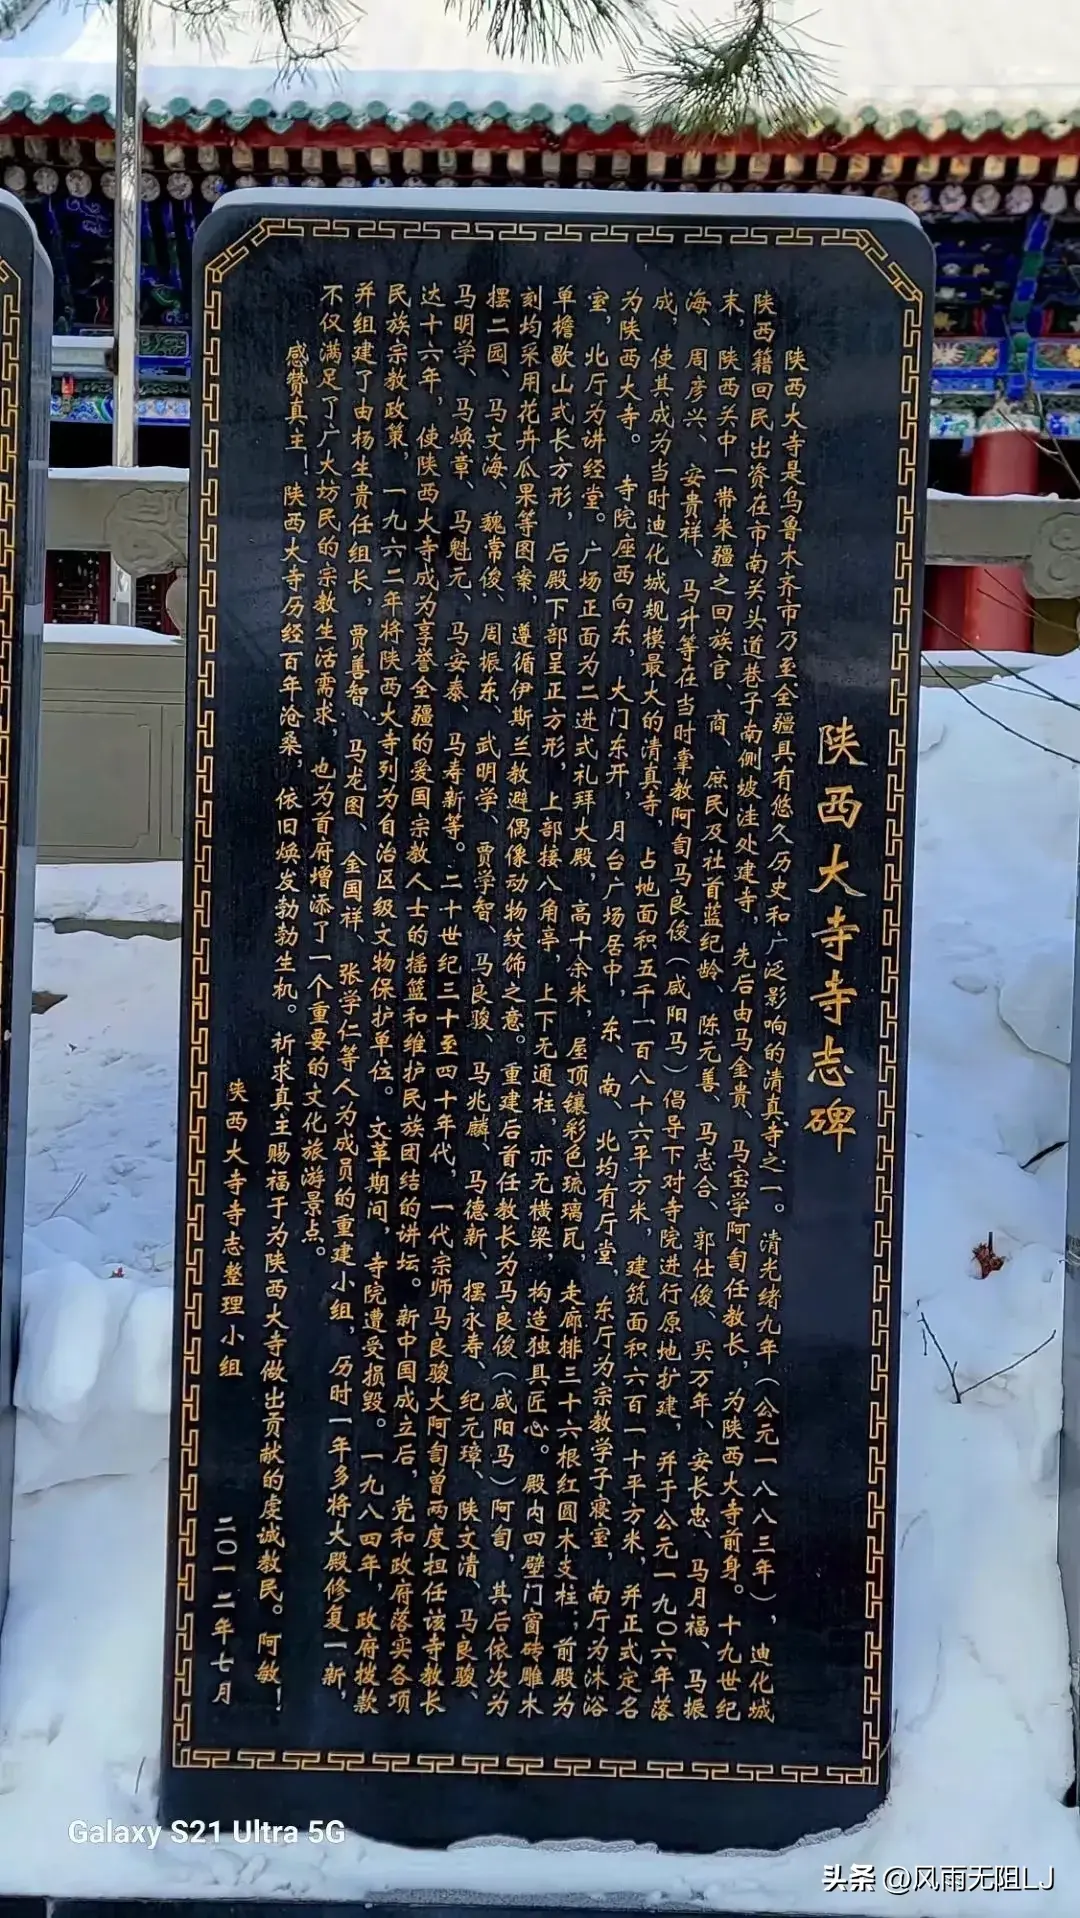 陕西大寺寺志碑
陕西大寺是乌鲁木齐市乃至全疆具有悠久历史和广泛影响的清真寺之一。清光绪九年（公元一八八三年），迪化城
陕西籍回民出资在市南关头道巷子南侧坡洼处建寺，先后由马金贵、马宝学阿訇任教长，为陕西大寺前身。十九世纪
末，陕西关中一带来疆之回族官、商、庶民及社首蓝纪龄、陈元善、马志合、郭仕俊、买万年、安长忠、马月福、马振
海、周彦兴、安贵祥、马升等在当时掌教阿訇马良俊（咸阳马）倡导下对寺院进行原地扩建，并于公元一九〇六年落
成，使其成为当时迪化城规模最大的清真寺，占地面积五千一百八十六平方米，建筑面积六百一十平方米，并正式定名
为陕西大寺。寺院座西向东，大门东开，月台广场居中，东、南、北均有厅堂，东厅为宗教学子寝室，南厅为沐浴
室，北厅为讲经堂。广场正面为二进式礼拜大殿，高十余米，屋顶镶彩色琉璃瓦，走廊排三十六根红圆木支柱；前殿为
单檐歇山式长方形，后殿下部呈正方形，上部接八角亭，上下无通柱，亦无横梁，构造独具匠心。殿内四壁门窗砖雕木
刻均采用花卉瓜果等图案，遵循伊斯兰教避偶像动物纹饰之意。重建后首任教长为马良俊（咸阳马）阿訇，其后依次为
摆二园、马文海、魏常俊、周振东、武明学、贾学智、马良骏、马兆麟、马德新、摆永寿、纪元璋、陕文清、马良骏、
马明学、马焕章、马魁元、马安泰、马寿新等。二十世纪三十至四十年代，一代宗师马良骏大阿訇曾两度担任该寺教长
达十六年，使陕西大寺成为享誉全疆的爱国宗教人士的摇篮和维护民族团结的讲坛。新中国成立后，党和政府落实各项
民族宗教政策，一九六二年将陕西大寺列为自治区级文物保护单位。文革期间，寺院遭受损毁。一九八四年，政府拨款
并组建了由杨生贵任组长，贾善智、马龙图、金国祥、张学仁等人为成员的重建小组，历时一年多将大殿修复一新，
不仅满足了广大坊民的宗教生活需求，也为首府增添了一个重要的文化旅游景点。
感赞真主！陕西大寺历经百年沧桑，依旧焕发勃勃生机。祈求真主赐福于为陕西大寺做出贡献的虔诚教民。阿敏！
陕西大寺寺志整理小组
二〇一二年七月
Galaxy S21 Ultra 5G
头条 @风雨无阻LJ